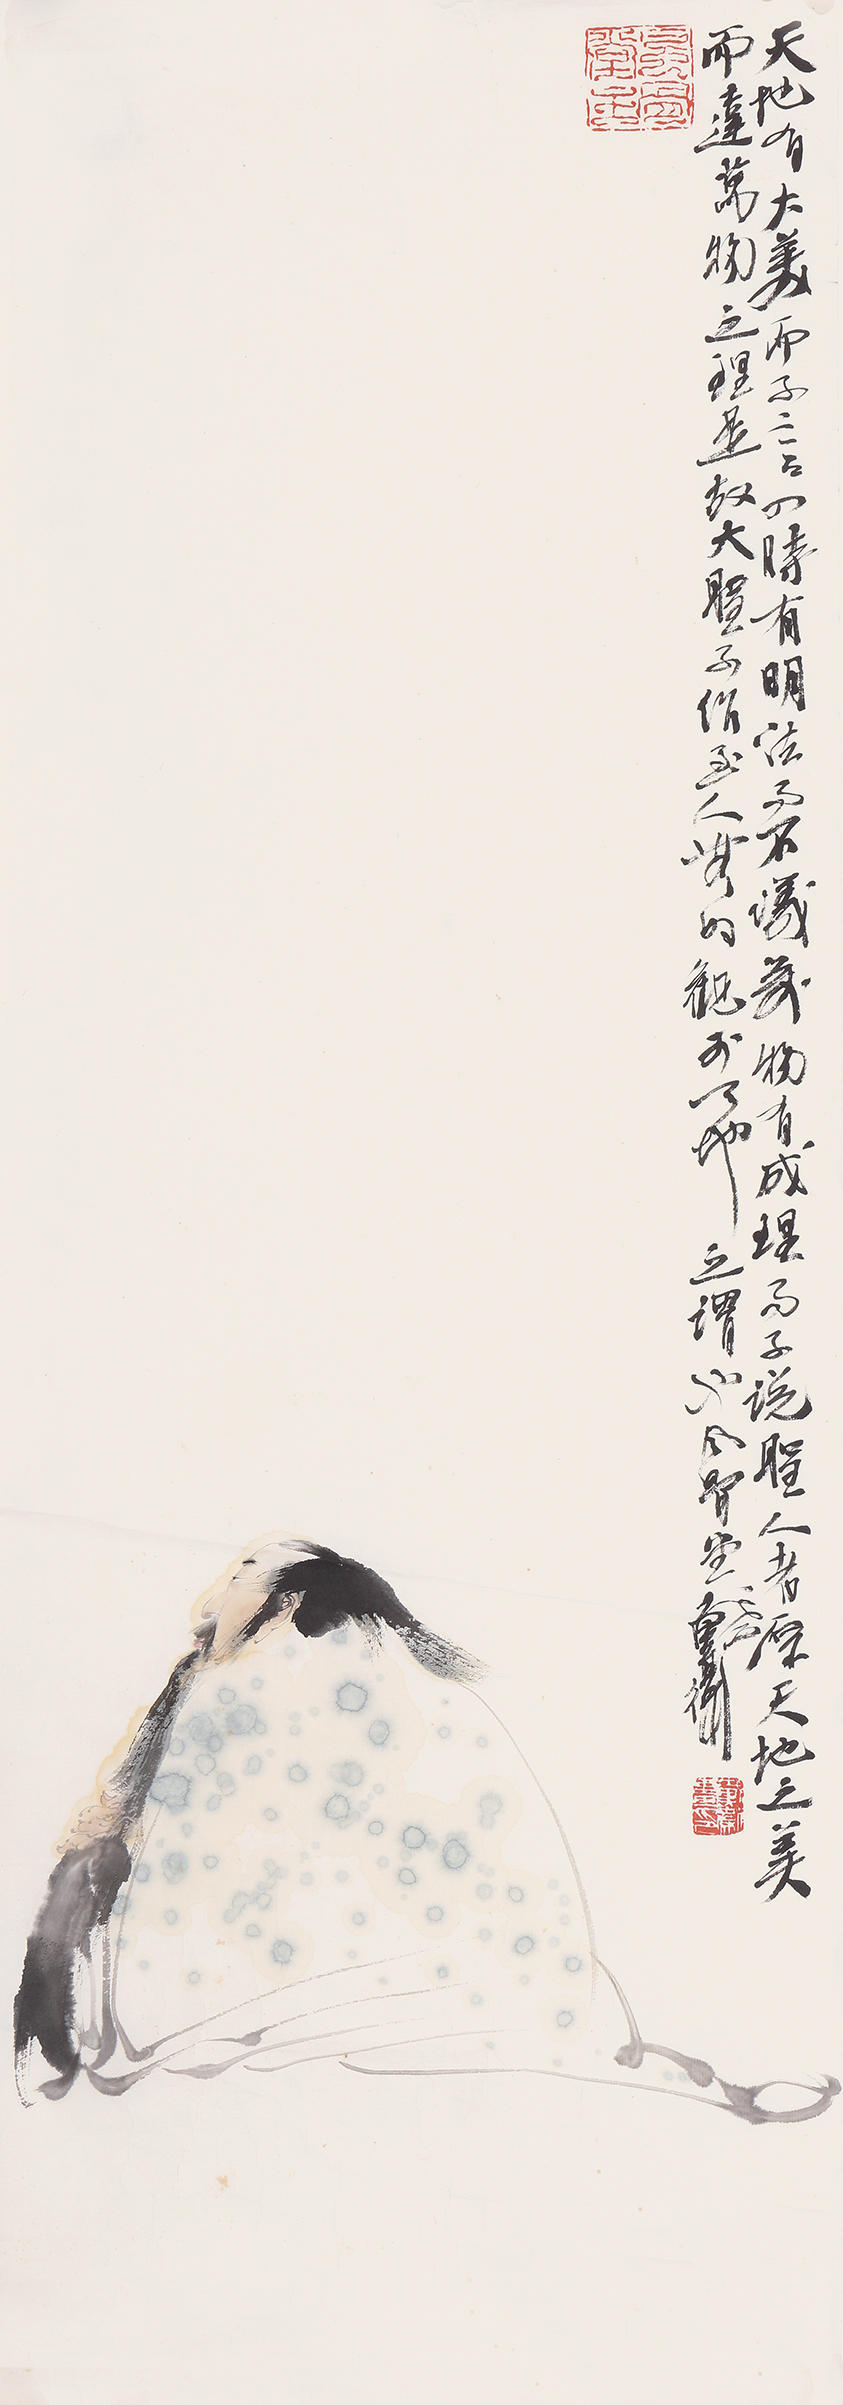 天地有大美而不言四時有明法而不議萬物有成理而不説聖人者原天地之美
而達萬物之理是故大聖不作至人無為觀於天地之謂也風骨堂戴衛